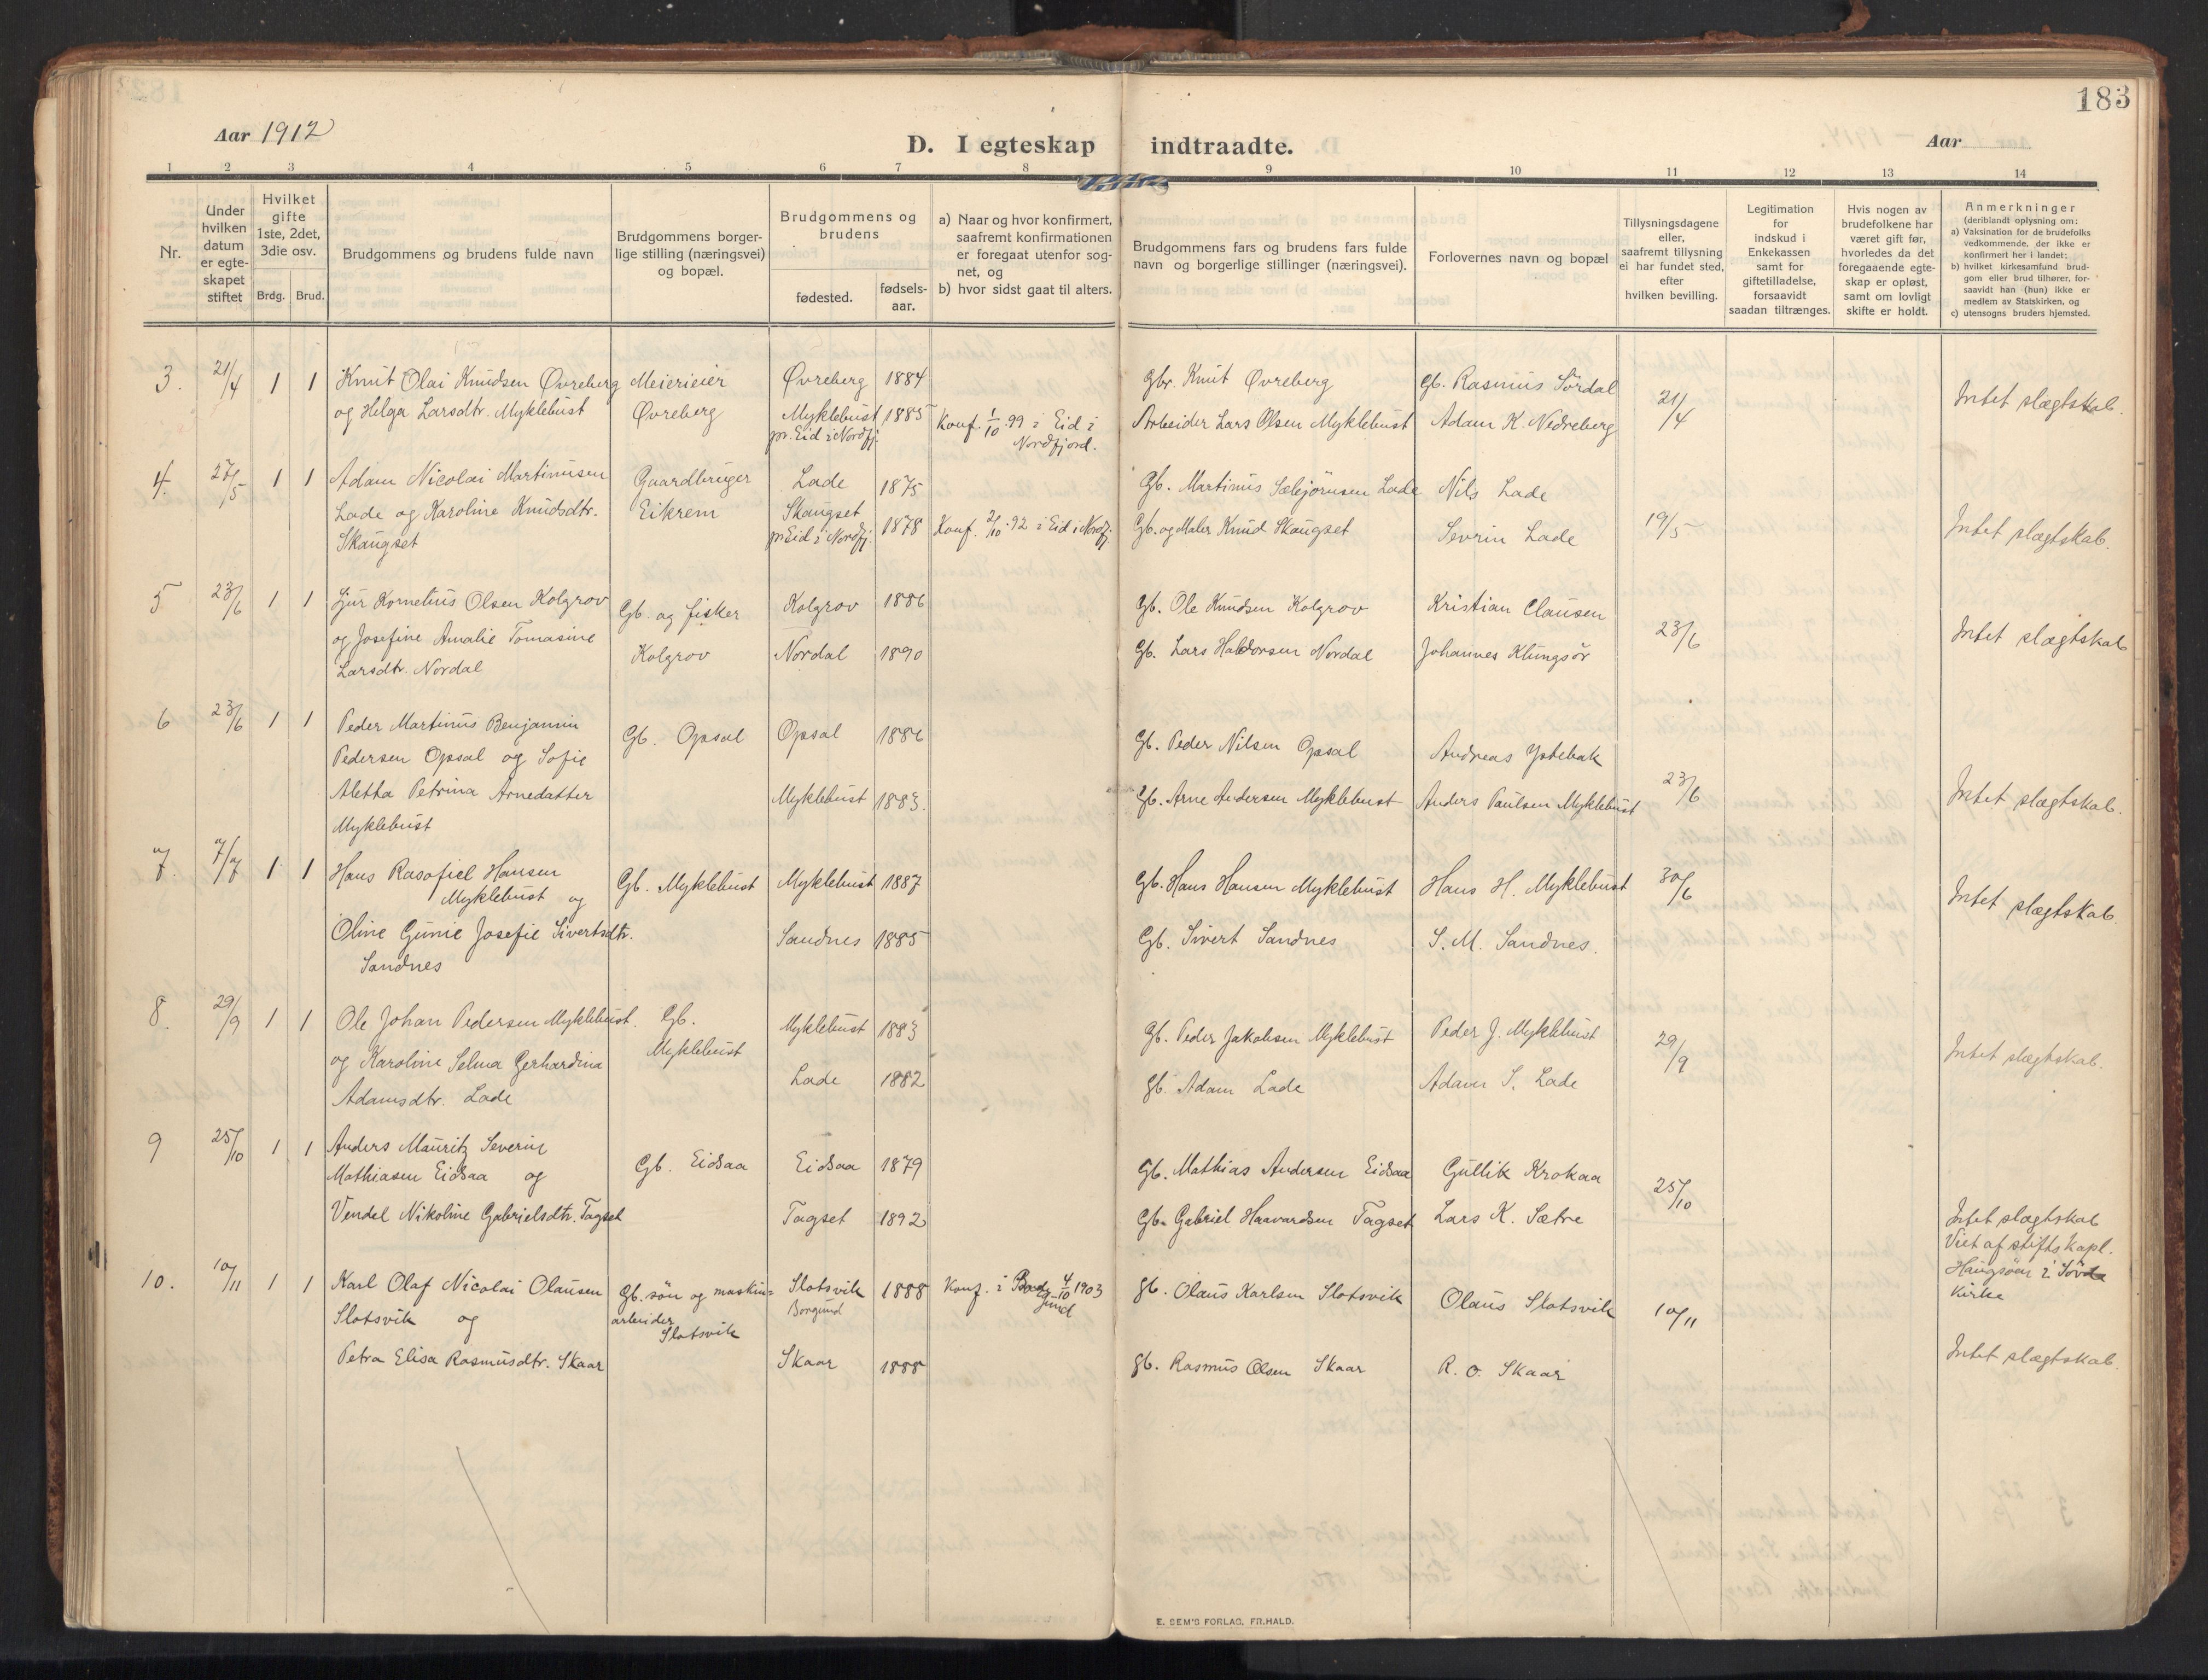 183
Aar 1912
D. I egteskap indtraadte.
Aar
1 2 3 4 5 6 7 8 9 10 11 12 13 14
Nr.
Under
hvilken
datum
er egte-
skapet
stiftet
Hvilket
gifte
1ste, 2det,
3die osv.
Brdg. Brud.
Brudgommens og brudens fulde navn
Brudgommens borger-
lige stilling (næringsvei)
og bopæl.
Brudgommens og
brudens
fødested.
fødsels-
aar.
a) Naar og hvor konfirmert,
saafremt konfirmationen
er foregaat utenfor sog-
net, og
b) hvor sidst gaat til alters.
Brudgommens fars og brudens fars fulde
navn og borgerlige stillinger (næringsvei).
Forlovernes navn og bopæl
Tillysningsdagene
eller,
saafremt tillysning
ei har fundet sted,
efter
hvilken bevilling.
Legitimation
for
indskud i
Enkekassen
samt for
giftetilladelse,
forsaavidt
saadan tiltrænges.
Hvis nogen av
brudefolkene har
været gift før,
hvorledes da det
foregaaende egte-
skap er opløst,
samt om lovligt
skifte er holdt.
Anmerkninger
(deriblandt oplysning om:
a) Vaksination for de brudefolks
vedkommende, der ikke er
konfirmert her i landet;
b) hvilket kirkesamfund brud-
gom eller brud tilhører, for-
saavidt han (hun) ikke er
medlem av Statskirken, og
c) utensogns bruders hjemsted.
3. 21/4 1 1 Knut Olai Knudsen Øvreberg Meierieier Øvreberg 1884 Gbr. Knut Øvreberg Gb. Rasmus Sördal 21/4 Intet slægtskab.
og Helga Larsdtr. Myklebust Øvreberg Myklebust 1885 Konf. 1/10 99 i Eid i Arbeider Lars Olsen Myklebust Adam K. Nedreberg
pr. Eid i Nordfj. Nordfjord.
4. 27/5 1 1 Adam Nicolai Martinusen Gaardbruger Lade 1875 Gb. Martinus Sæbjörnsen Lade Nils Lade
Lade og Karoline Knudsdtr. Eikrem Skaugset 1878 Konf. 2/10 92 i Eid i Nordfj. Gb. og Maler Knud Skaugset Sevrin Lade 19/5 Intet slægtskab.
Skaugset pr Eid i Nordfj.
5 23/6 1 1 Sjur Kornelius Olsen Kolgrov Gb. og fisker Kolgrov 1886 Gb. Ole Knudsen Kolgrov Kristian Clausen 23/6 Intet slægtskab
og Josefine Amalie Tomasine Kolgrov Nordal 1890 Gb. Lars Haldorsen Nordal Johannes Klungsör
Larsdtr. Nordal
6 23/6 1 1 Peder Martinus Benjamin Gb. Opsal Opsal 1886 Gb. Peder Nilsen Opsal Andreas Ystebak
Pedersen Opsal og Sofie
Aletta Petrina Arnedatter Myklebust 1883. Gb. Arne Andersen Myklebust Anders Paulsen Myklebust 23/6 Intet slægtskab.
Myklebust
7. 7/7 1 1 Hans Rasofiel Hansen Gb. Myklebust Myklebust 1887 Gb. Hans Hansen Myklebust Hans H. Myklebust 30/6 Intet slægtskab.
Myklebust og
Oline Gunie Josefie Sivertsdtr. Sandnes 1885 Gb. Sivert Sandnes S. M. Sandnes.
Sandnes
8. 29/9 1 1 Ole Johan Pedersen Myklebust. Gb. Myklebust 1883 Gb. Peder Jakobsen Myklebust Peder J. Myklebust 29/9 Intet slægtskab.
og Karoline Selma Gerhardina Myklebust Lade 1882 Gb. Adam Lade Adam S. Lade
Adamsdtr. Lade
9 25/10 1 1 Anders Mauritz Severin
Mathiasen Eidsaa og Gb. Eidsaa Eidsaa 1879 Gb. Mathias Andersen Eidsaa Gullik Krokaa 25/10
Vendel Nikoline Gabrielsdtr. Tagset Tagset 1892 Gb. Gabriel Haavardsen Tagset Lars K. Sætre Intet slægtskab
Viet af stiftskapl.
Haugsöen i
kirke
10. 10/11 1 1 Karl Olaf Nicolai Olausen Gb. sön og maskin= Slotsvik 1888 Konf. i Borgund 4/10 1903 Gb. Olaus Karlsen Slotsvik Olaus Slotsvik 10/11
Slotsvik og arbeider Borgund
Slotsvik
Petra Elisa Rasmusdtr. Skaar Skaar 1888 Gb. Rasmus Olsen Skaar R. O. Skaar Intet slægtskab.
E. SEM'S FORLAG, FR.HALD.